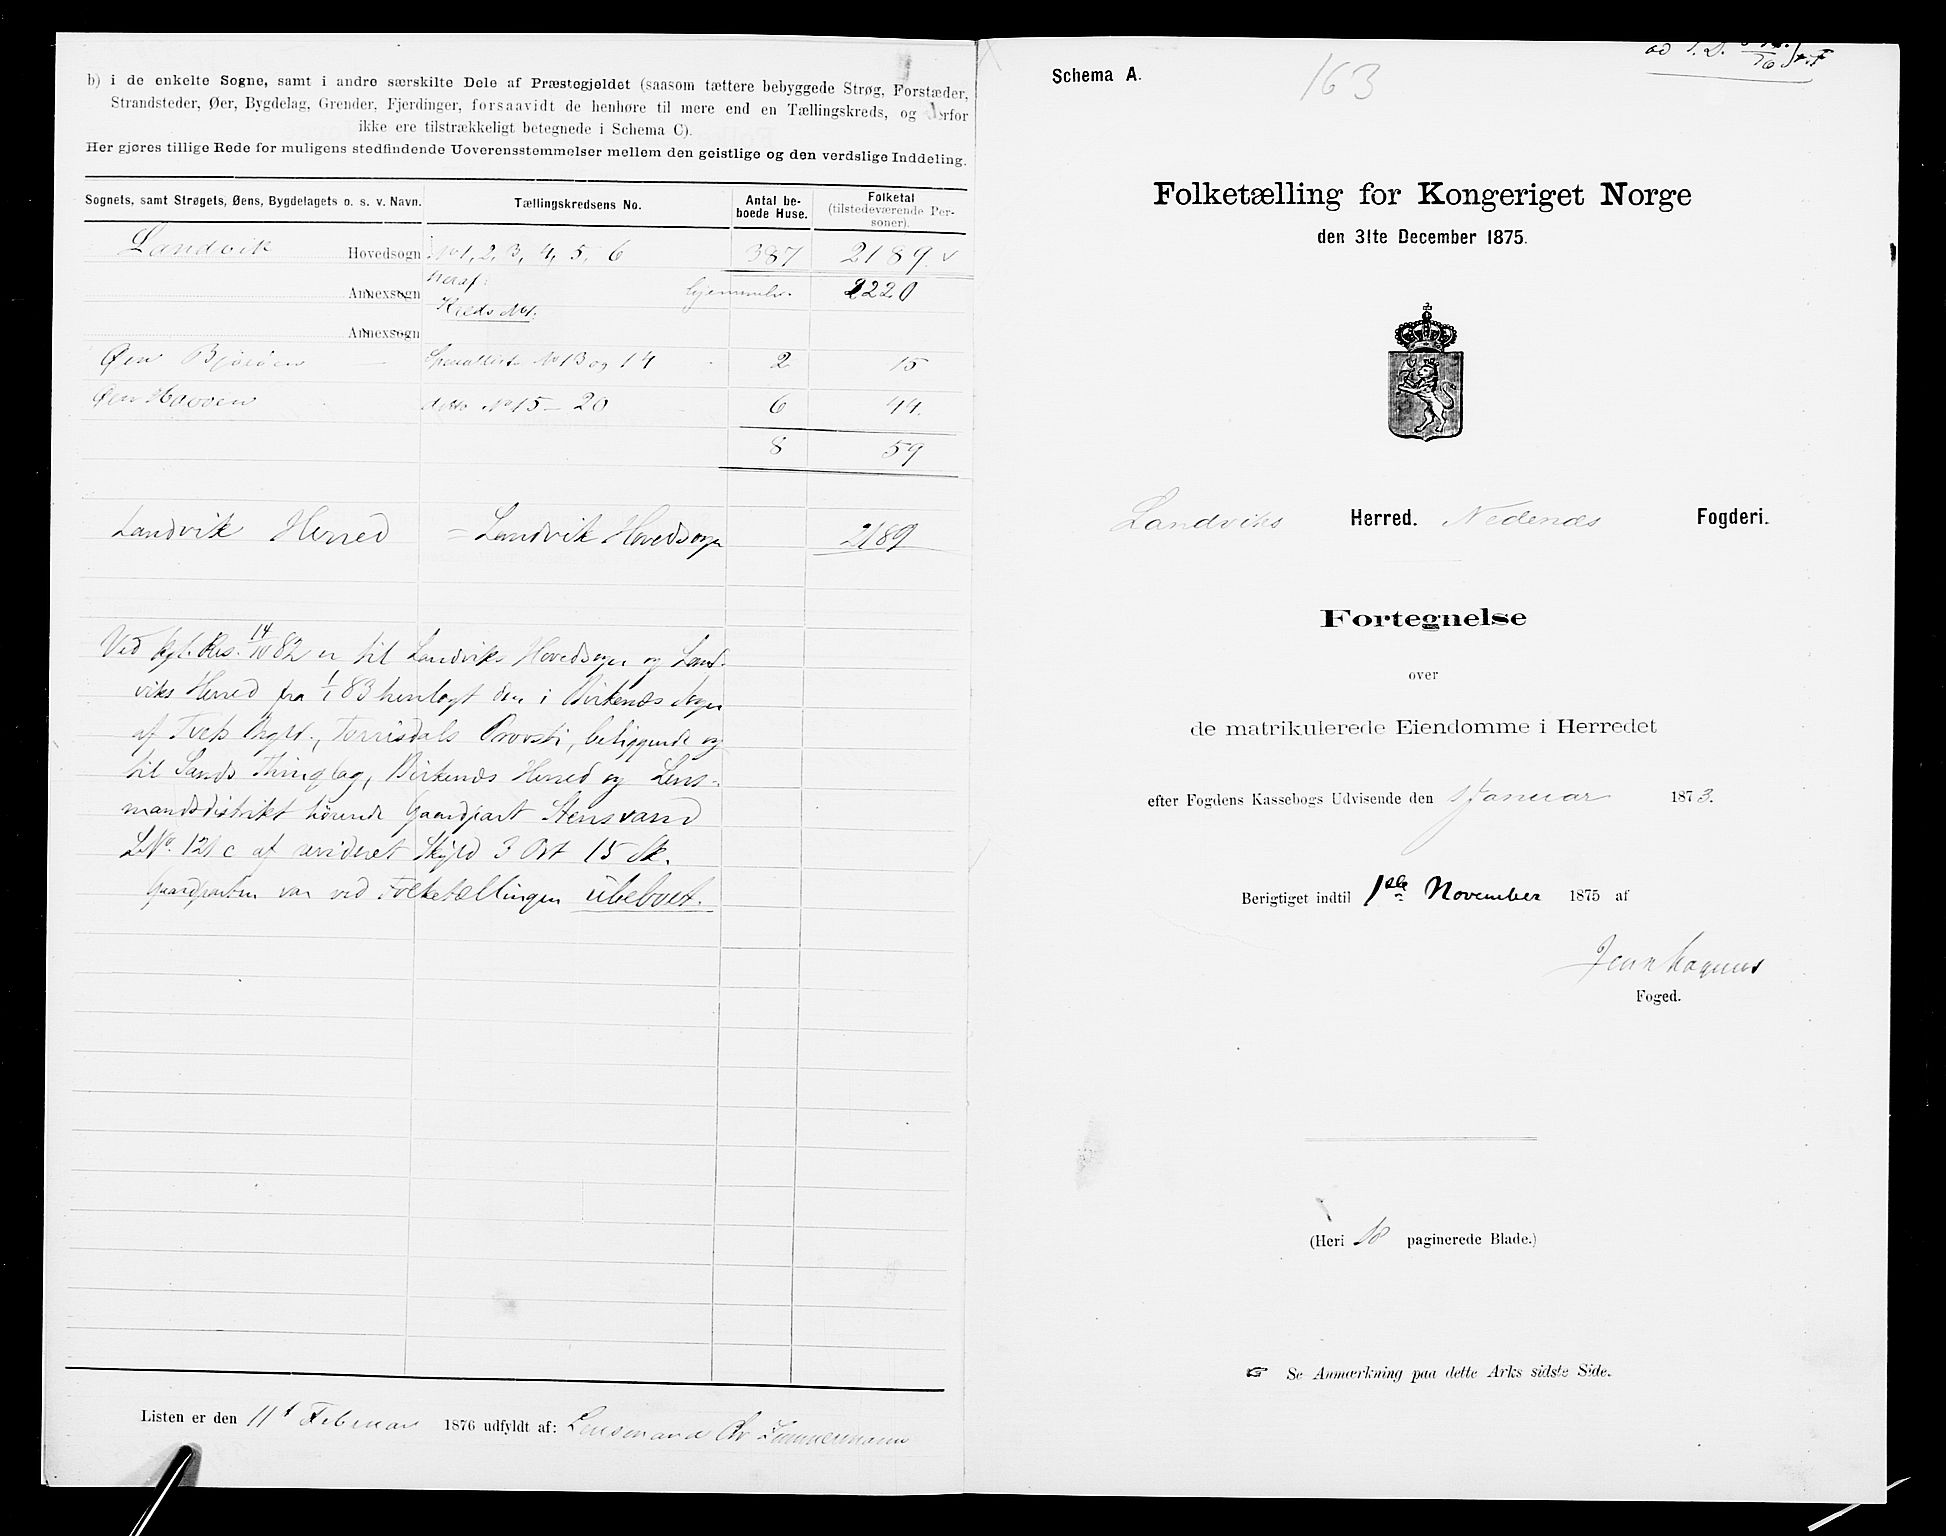 b) i de enkelte Sogne, samt i andre særskilte Dele af Præstegjeldet (saasom tættere bebyggede Strøg, Forstæder,
Strandsteder, Øer, Bygdelag, Grender, Fjerdinger, forsaavidt de henhøre til mere end en Tællingskreds, og derfor
ikke ere tilstrækkeligt betegnede i Schema C).
Her gjøres tillige Rede for muligens stedfindende Uoverensstemmelser mellem den geistlige og den verdslige Inddeling.
Sognets, samt Strøgets, Øens, Bygdelagets o. s. v. Navn. Tællingskredsens No. Antal be- Folketal
boede Huse. (tilstedeværende Per-
soner).
Landvik Hovedsogn No 1, 2, 3, 4, 5, 6 387 2189
Annexsogn heraf: hjemmeh. 2220
Kreds No 1.
Annexsogn
Øen Specialliste No 13 og 14 2 15
Øen ditto No 15 - 20 6 44.
8 59
Landvik Herred = Landvik Hovedsogn 2189
Ved kgl. Res. 14/10 82 er til Landviks Hovedsogn og Land-
viks Herred fra 1/1 83 henlagt den i Birkenæs Sogn
af Tveds Prgld., Torrisdals Provsti, beliggende og
til Sands Thinglag, Birkenæs Herred og Lens-
mandsdistrikt hørende Gaardpart Stensvand
L.No. 121 c af revideret Skyld 3 Ort 15 Sk.
Gaardparten var ved Folketællingen ubeboet.
Listen er den 11t Februar 1876 udfyldt af: Lensmand Chr Zimmermann
Schema A.
163
Folketælling for Kongeriget Norge
den 31te December 1875.
Landviks Herred. Nedenæs Fogderi.
Fortegnelse
over
de matrikulerede Eiendomme i Herredet
efter Fogdens Kassebogs Udvisende den 1 Januar 1873.
Berigtiget indtil 1ste November 1875 af
Foged.
(Heri 18 paginerede Blade.)
☞ Se Anmærkning paa dette Arks sidste Side.